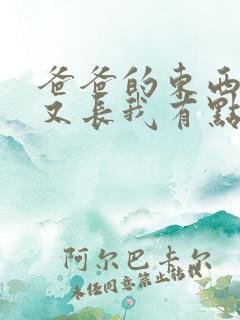 爸爸的東西
又長我有點
阿尔巴卡尔
未经同意禁止转载